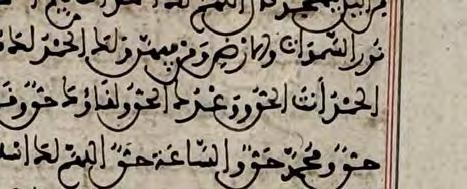 نور السموات والارض ومن فيهن ولك الحمد لك
الحمد انت الحق ووعدك الحق ولقاؤك حق و
حق ومحمد حق والساعة حق اللهم لك